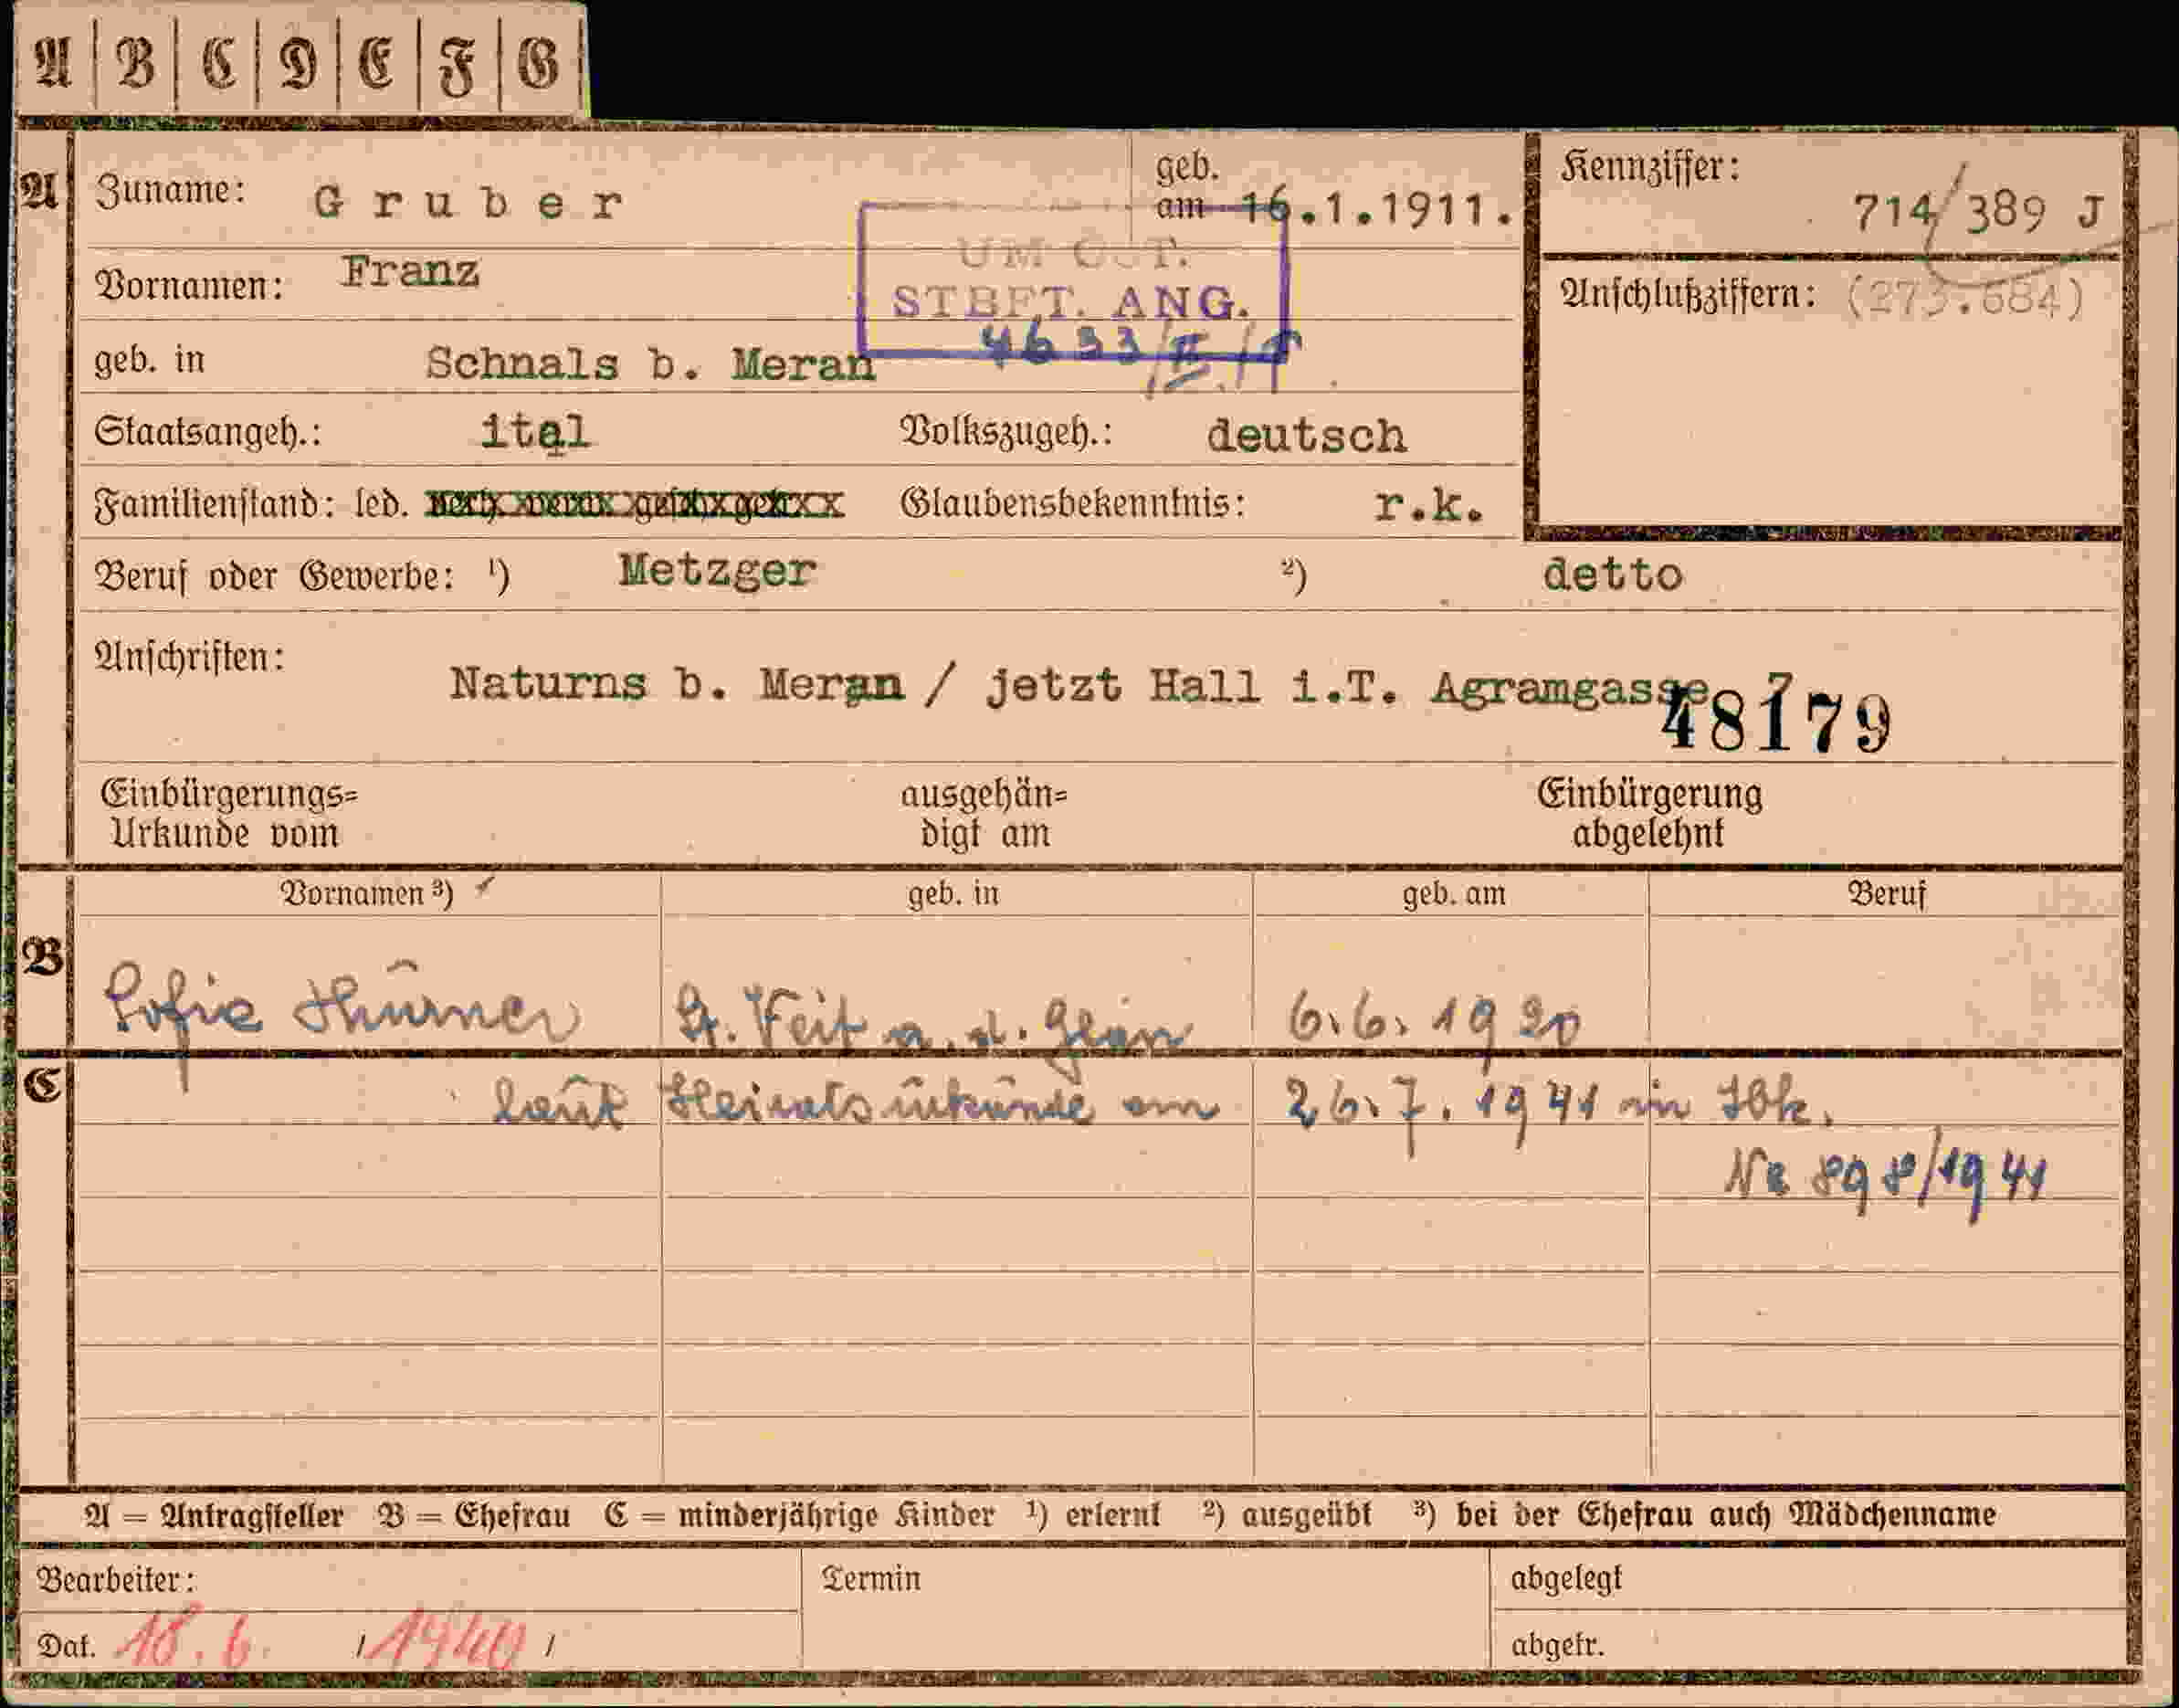 A B C D E F G
A Zuname: Gruber geb. am 16.1.1911. Kennziffer: 714/389 J
UM OST.
Vornamen: Franz STBFT. ANG. Anschlußziffern: (273.684)
4633/II/
geb. in Schnals b. Meran
Staatsangeh.: ital Volkszugeh.: deutsch
Familienstand: led. Glaubensbekenntnis: r.k.
Beruf oder Gewerbe: ¹) Metzger ²) detto
Anschriften: Naturns b. Meran / jetzt Hall i.T. Agramgasse 7
48179
Einbürgerungs= Urkunde vom ausgehän= digt am Einbürgerung abgelehnt
Vornamen ³) geb. in geb. am Beruf
B Sofie Thurner St. Veit a. d. Glan 6.6.1920
C laut Heiratsurkunde am 26.7.1941 in Ibk.
Nr 898/1941
A = Antragsteller B = Ehefrau C = minderjährige Kinder ¹) erlernt ²) ausgeübt ³) bei der Ehefrau auch Mädchenname
Bearbeiter: Termin abgelegt
Dat. 18.6. / 1940 / abgetr.